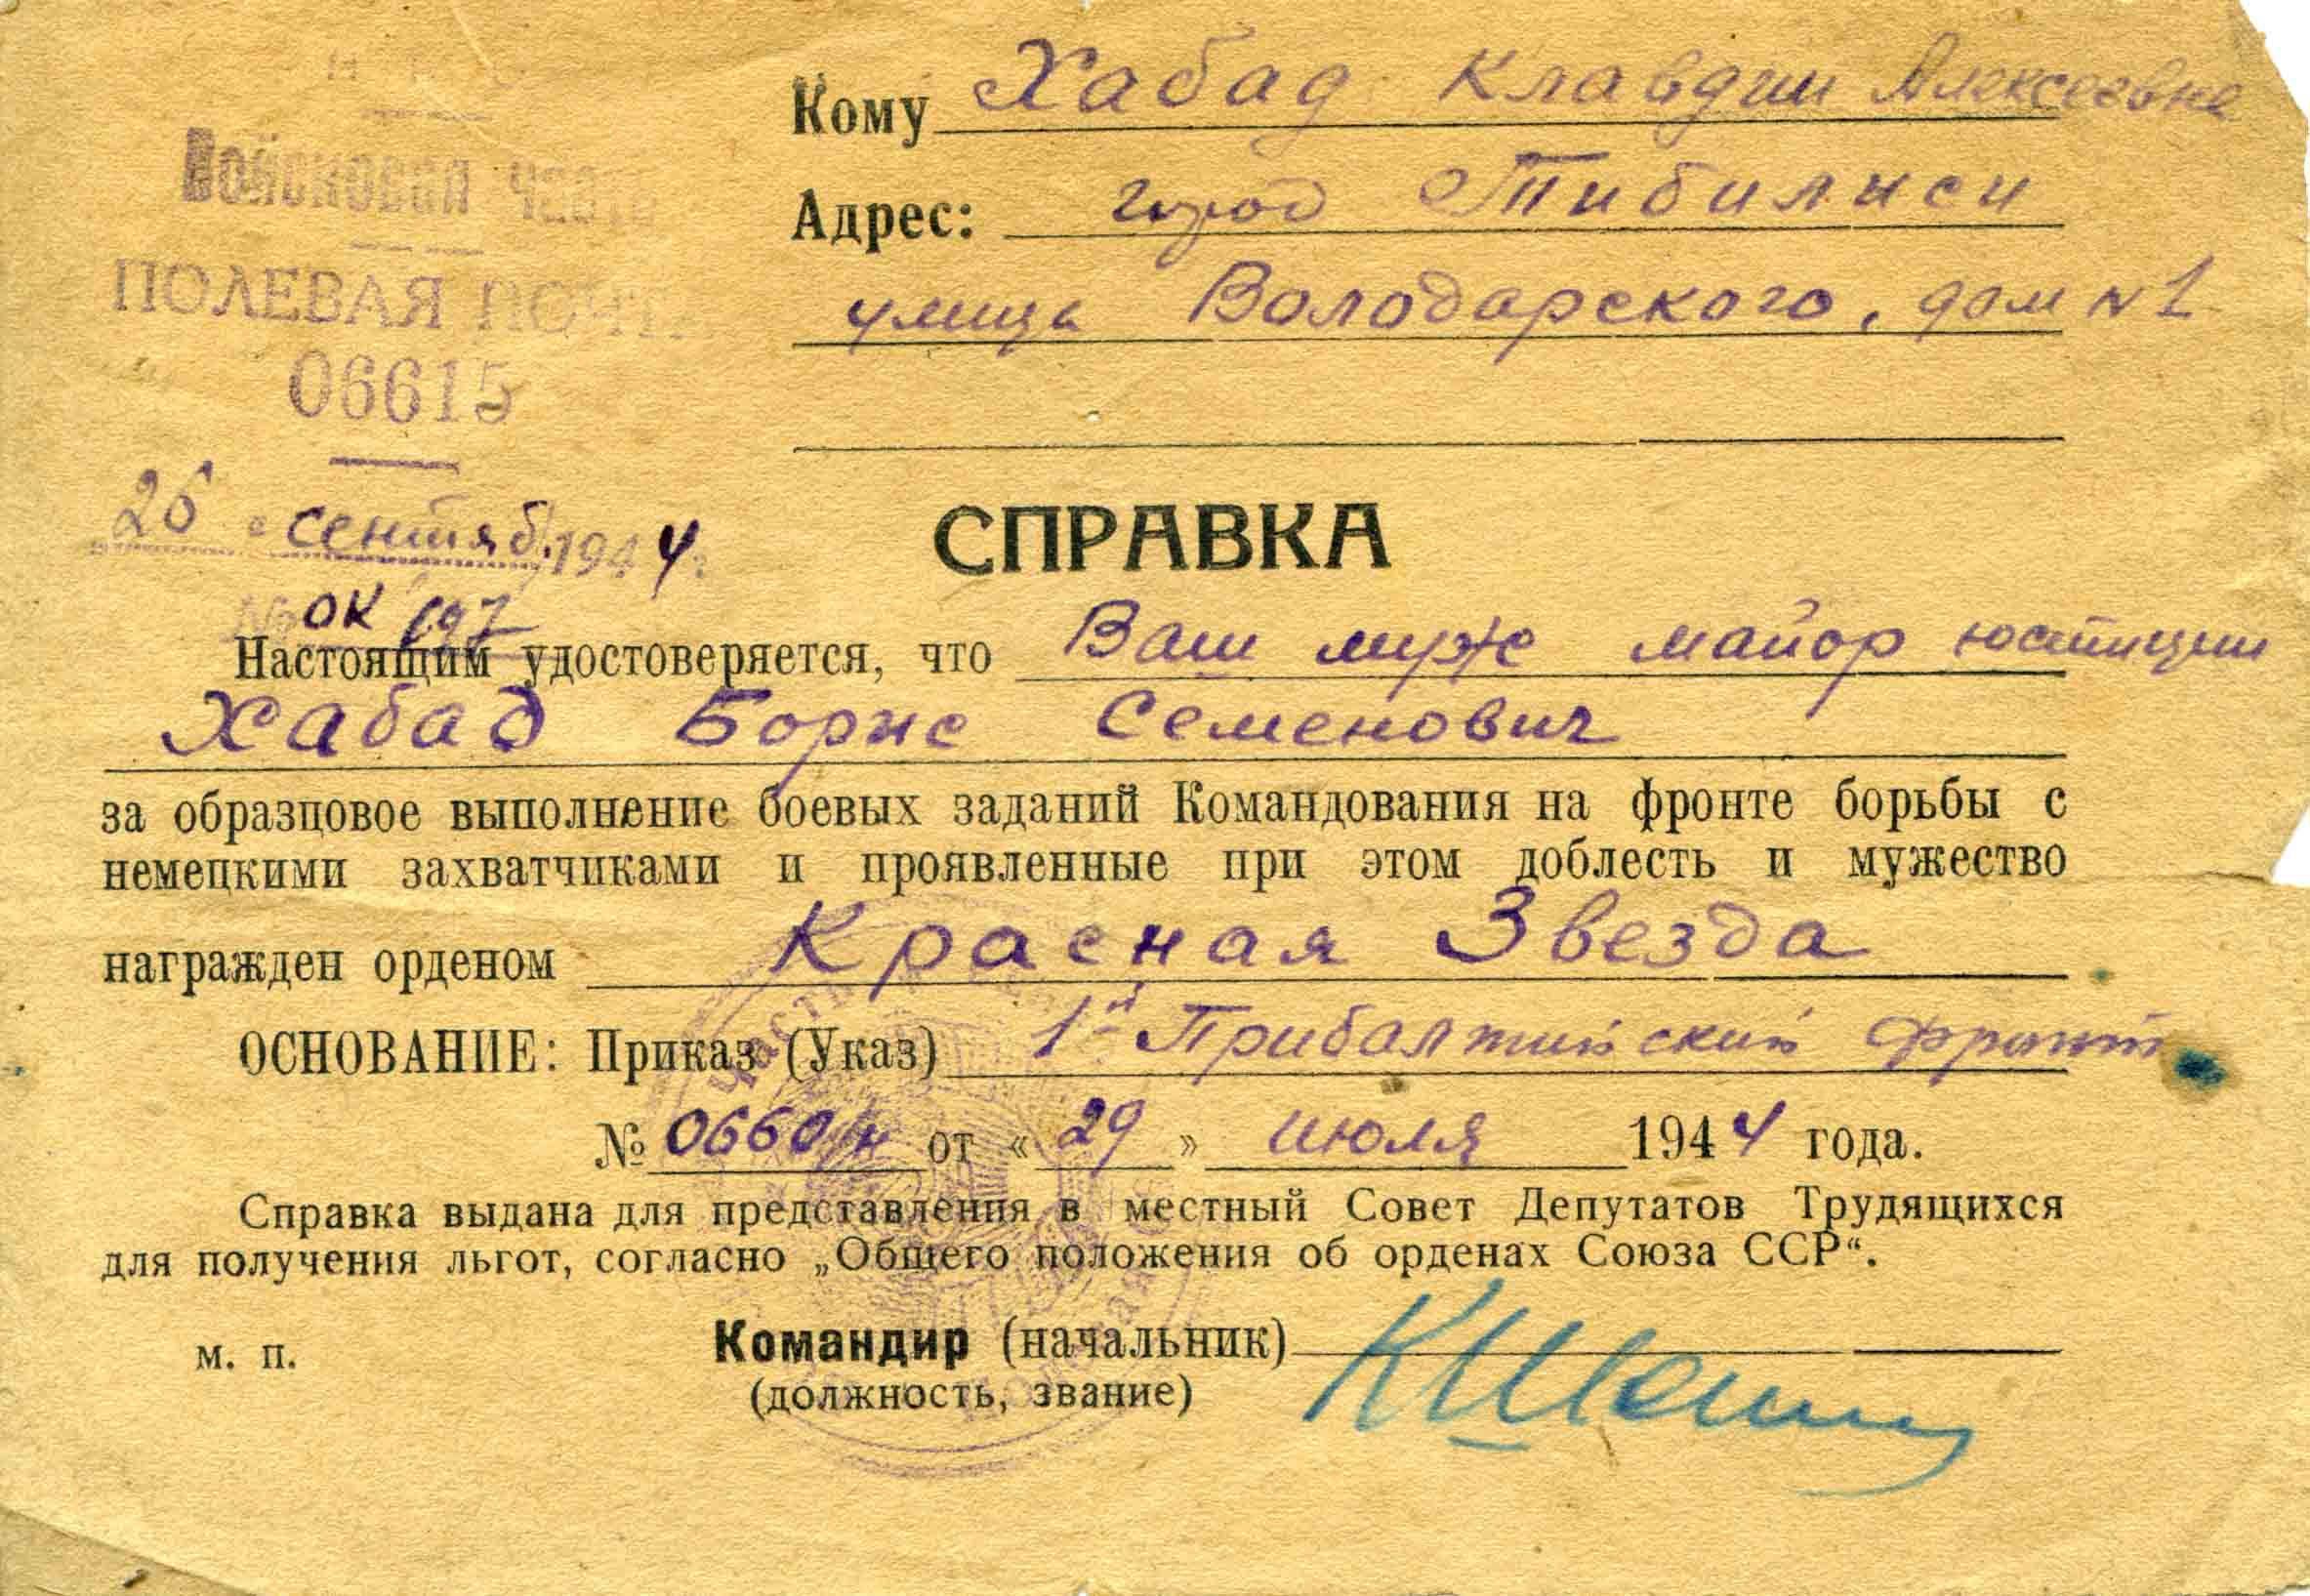 Кому Хабад Клавдии Алексеевне
Адрес: город Тибилиси
улица Володарского, дом N 1
Войсковая часть
ПОЛЕВАЯ ПОЧТА
06615
26 сентяб. 1944 г.
№ ОК/197
СПРАВКА
Настоящим удостоверяется, что Ваш муж майор юстиции
Хабад Борис Семенович
за образцовое выполнение боевых заданий Командования на фронте борьбы с
немецкими захватчиками и проявленные при этом доблесть и мужество
награжден орденом Красная Звезда
ОСНОВАНИЕ: Приказ (Указ) 1й Прибалтийский фронт
№ 0660/н от « 29 » июля 1944 года.
Справка выдана для представления в местный Совет Депутатов Трудящихся
для получения льгот, согласно „Общего положения об орденах Союза ССР“.
м. п.
Командир (начальник)
(должность, звание)